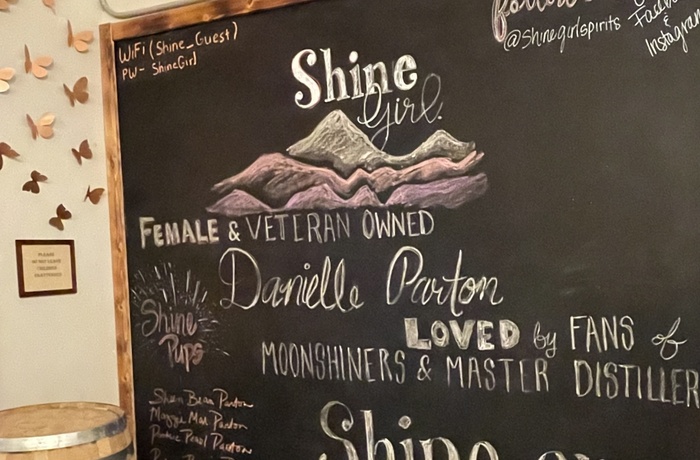 WiFi (Shine_Guest)
PW- ShineGirl
follow
@Shinegirlspirits
Facebook
&
Instagram
Shine
Girl.
FEMALE & VETERAN OWNED
Danielle Parton
LOVED by FANS of
MOONSHINERS & MASTER DISTILLER
Shine
Pups
Parton
Maggie Mae Parton
Pearl Parton
PLEASE
DO NOT LEAVE
CHILDREN
UNATTENDED
Shine on